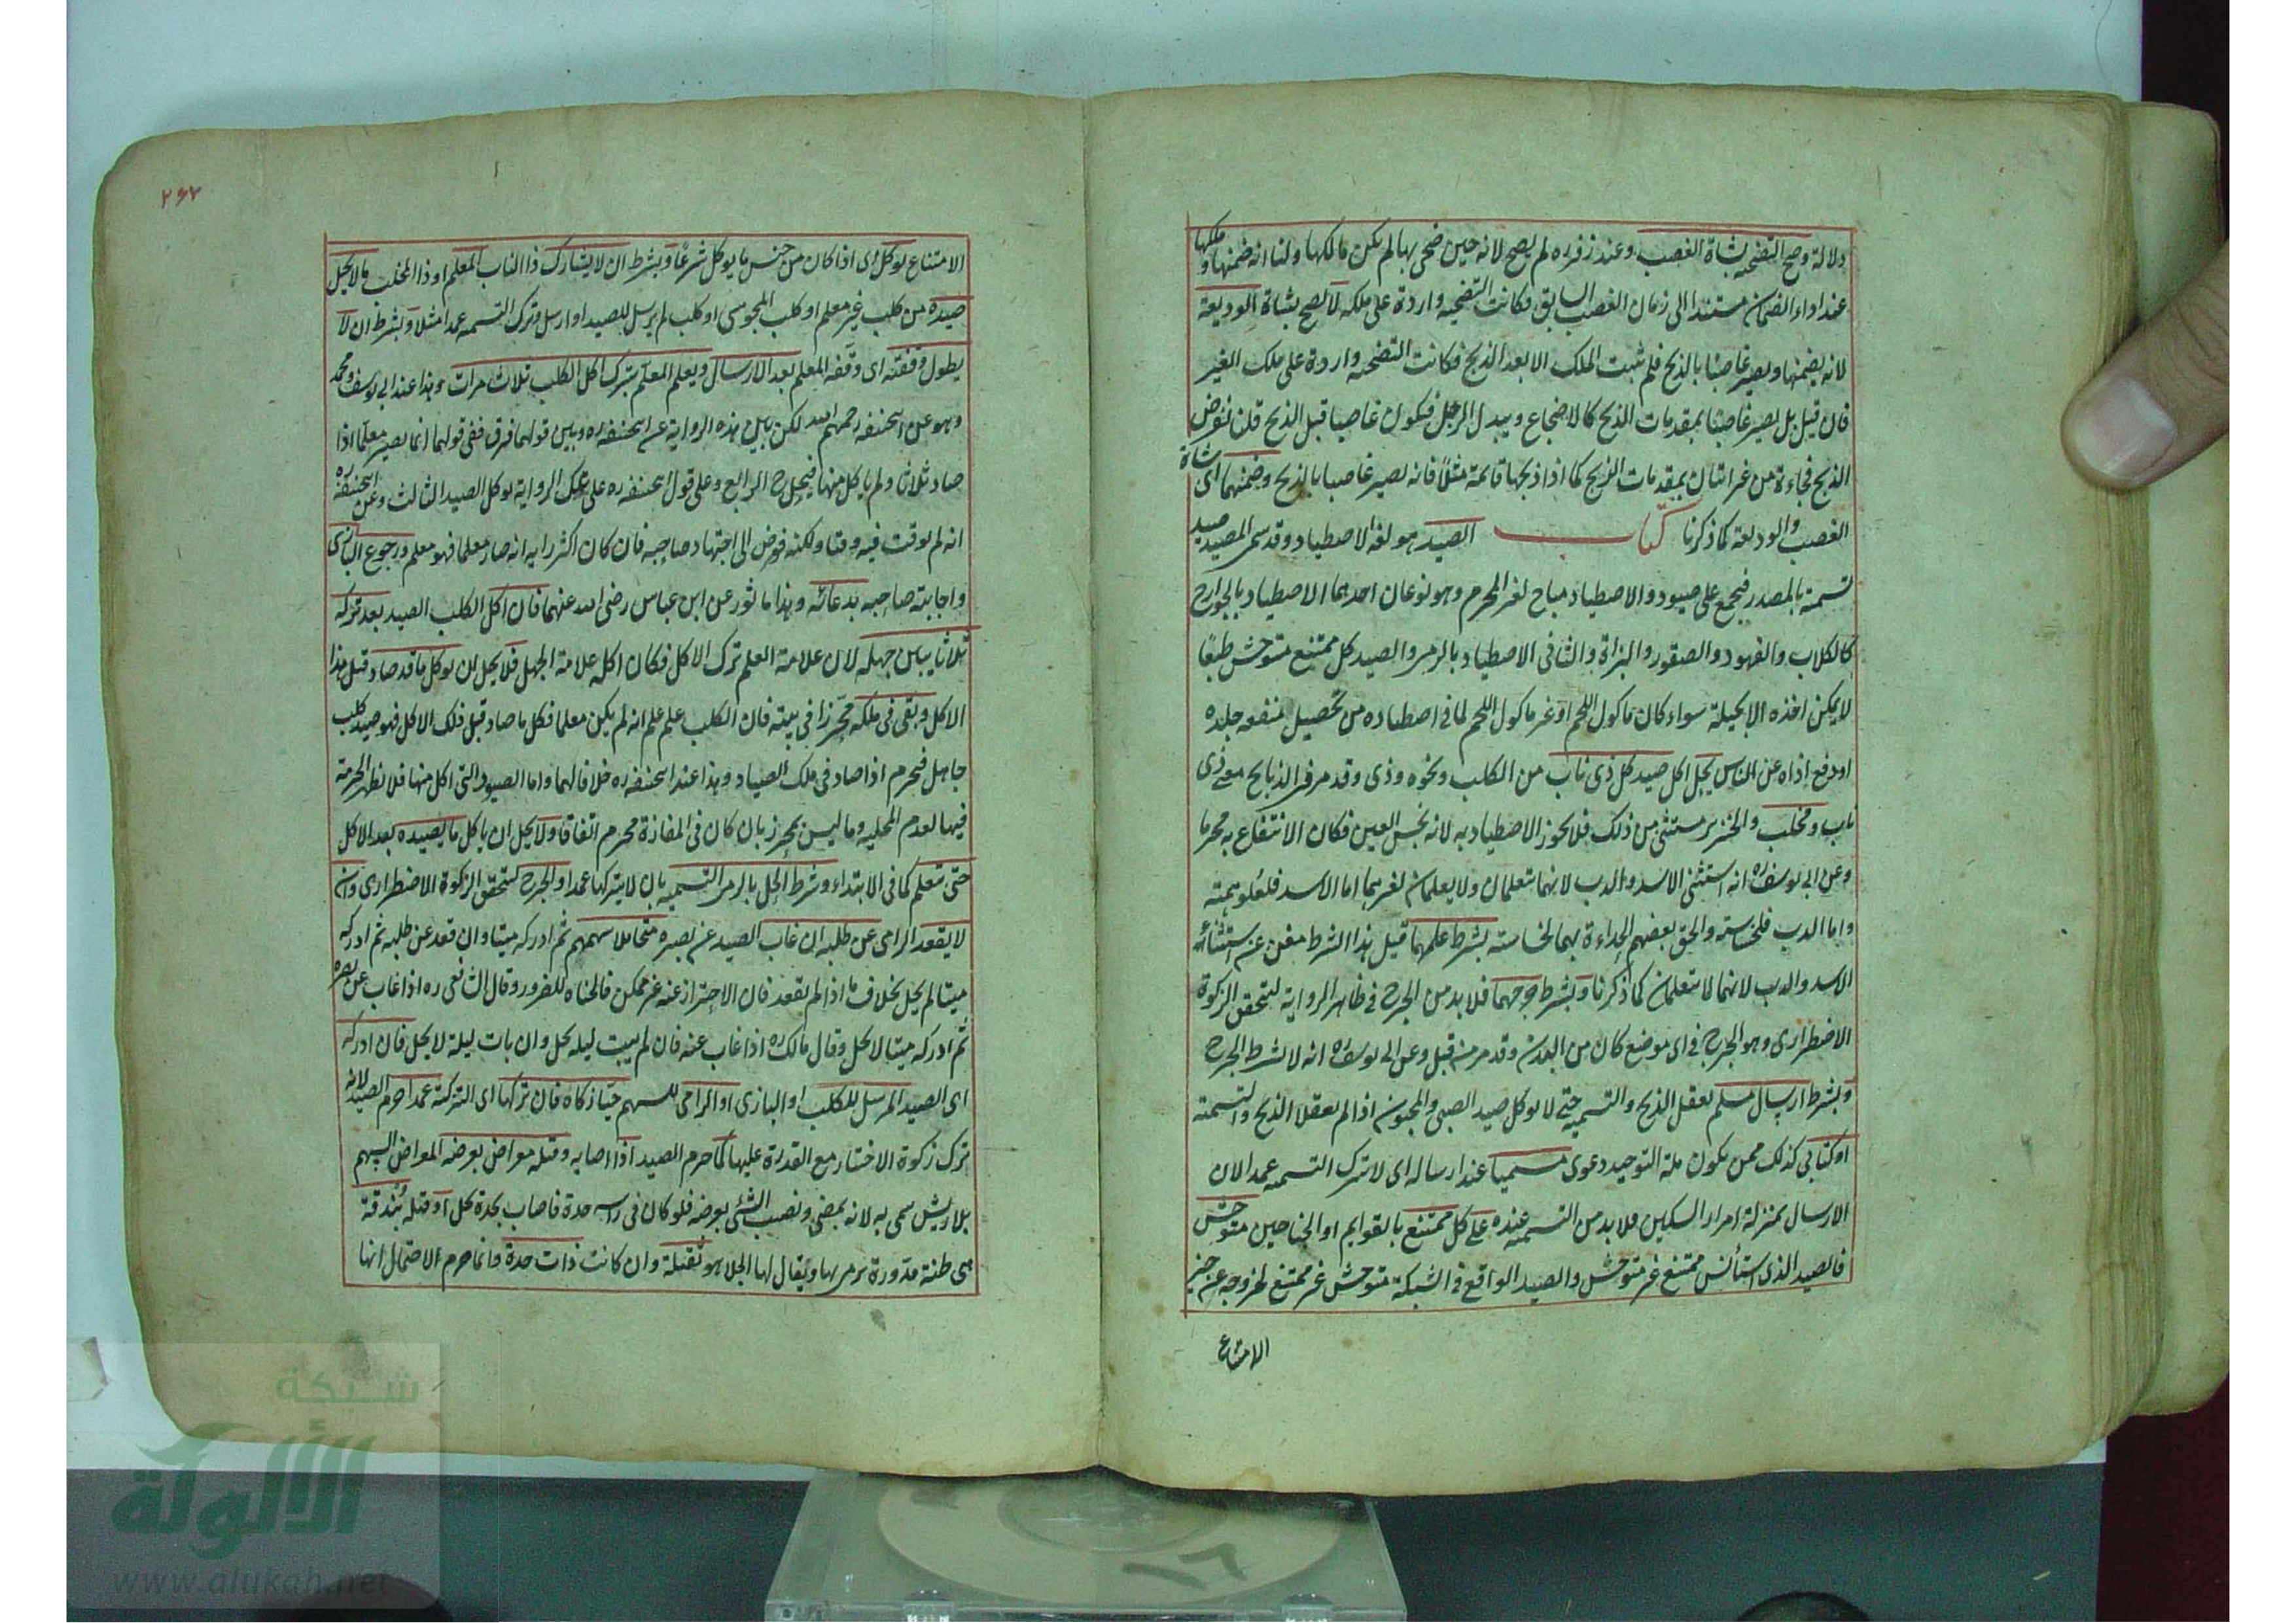 دلالة وصح التضحية بشاة الغصب وعند زفر ره لم يصح لانه حين ضحى بها لم يكن مالكها ولنا انه ضمنها وملكها
عند اداء الضمان مستندا الى زمان الغصب السابق فكانت التضحية واردة على ملكه لا يصح بشاة الوديعة
لانه يضمنها ويصير غاصبا بالذبح فلم يثبت الملك الا بعد الذبح فكانت التضحية واردة على ملك الغير
فان قيل بل يصير غاصبا بمقدمات الذبح كالاضجاع وبعد الرجل فيكون غاصبا قبل الذبح قلنا نفرض
الذبح فجاءة من غير اتيان بمقدمات الذبح كما اذا ذبحها قائمة مثلا فانه يصير غاصبا بالذبح وضمنهما اى شاة
الغصب والوديعة كما ذكرنا كتاب الصيد هو لغة الاصطياد وقد سمى المصيد صيد
تسمية بالمصدر فيجمع على صيود والاصطياد مباح لغير المحرم وهو نوعان احدهما الاصطياد بالجوارح
كالكلاب والفهود والصقور والبزاة والثانى الاصطياد بالرمى والصيد كل ممتنع متوحش طبعا
لا يمكن اخذه الا بحيلة سواء كان ماكول اللحم او غير ماكول اللحم لما فى اصطياده من تحصيل منفعة جلده
او دفع اذاه عن الناس يحل اكل صيد كل ذى ناب من الكلب ونحوه وذى وقد مر فى الذبايح معنى ذى
ناب ومخلب والخنزير مستثنى من ذلك فلا يجوز الاصطياد به لانه نجس العين فكان الانتفاع به محرما
وعن ابى يوسف ره انه استثنى الاسد والدب لانهما يتعلمان ولا يعلمان لغيرهما اما الاسد فلعلو همته
واما الدب فلخساسته والحق بعضهم الحداءة بهما لخساسته بشرط علمهما قيل هذا الشرط مغن عن استثناء
الاسد والدب لانهما لا يتعلمان كما ذكرنا وبشرط جرحهما فلا بد من الجرح فى ظاهر الرواية لتحقق الزكوة
الاضطرارى وهو الجرح فى اى موضع كان من البدن وقد مر من قبل وعن ابى يوسف ره انه لا يشترط الجرح
وبشرط ارسال مسلم يعقل الذبح والتسمية حتى لا يوكل صيد الصبى والمجنون اذا لم يعقلا الذبح والتسمية
او كتابى كذلك ممن يكون ملة التوحيد دعوى مسميا عند ارساله اى لا يترك التسمية عمدا لان
الارسال بمنزلة امرار السكين فلا بد من التسمية عنده على كل ممتنع بالقوايم او الجناحين متوحش
فالصيد الذى استأنس ممتنع غير متوحش والصيد الواقع فى الشبكة متوحش غير ممتنع لخروجه عن حيز
الامتناع
٢٦٧
الامتناع يوكل اى اذا كان من جنس ما يوكل شرعا وبشرط ان لا يشارك ذا الناب المعلم او ذا المخلب ما لا يحل
صيده من كلب غير معلم او كلب المجوسى او كلب لم يرسل للصيد او ارسل وترك التسمية عمدا مثلا وبشرط ان لا
يطول وقفته اى وقفة المعلم بعد الارسال ويعلم المعلم بترك اكل الكلب ثلاث مرات وهذا عند ابى يوسف ومحمد
وهو عن ابى حنيفه رحمهم الله لكن بين هذه الرواية عن ابى حنيفه ره وبين قولهما فرق ففى قولهما انما يصير معلما اذا
صاد ثلاثا ولم ياكل منها فيحل ح الرابع وعلى قول ابى حنيفه ره على تلك الرواية يوكل الصيد الثالث وعن ابى حنيفة ره
انه لم يوقت فيه وقتا ولكنه فوض الى اجتهاد صاحبه فان كان اكثر رايه انه صار معلما فهو معلم ورجوع البازى
واجابته صاحبه بدعائه وهذا ماثور عن ابن عباس رضى الله عنهما فان اكل الكلب الصيد بعد تركه
ثلاثا يباين جهله لان علامة العلم ترك الاكل فكان اكله علامة الجهل فلا يحل ان يوكل ما قد صاد قبل هذا
الاكل وبقى فى ملكه محرزا فى بيته فان الكلب علم انه لم يكن معلما فكل ما صاد قبل ذلك الاكل فهو صيد كلب
جاهل فيحرم اذا صاد فى ملك الصياد وهذا عند ابى حنيفه ره خلافا لهما واما الصيود التى اكل منها فلا تظهر الحرمة
فيها لعدم المحلية وما ليس بمحرز بان كان فى المفازة محرم اتفاقا ولا يحل ان ياكل ما يصيده بعد الاكل
حتى تعلم كما فى الابتداء وشرط الحل بالرمى التسمية بان لا يتركها عمدا والجرح لتحقق الزكوة الاضطرارى وان
لا يقعد الرامى عن طلبه ان غاب الصيد عن بصره متحاملا سهمهم ثم ادركه ميتا وان قعد عن طلبه ثم ادركه
ميتا لم يحل بخلاف ما اذا لم يقعد فان الاحتراز عنه غير ممكن فالحناه للضرورو وقال الشافعى ره اذا غاب عن بصره
ثم ادركه ميتا لا يحل وقال مالك ره اذا غاب عنه فان لم يبت ليلة يحل وان بات ليلة لا يحل فان ادركه
اى الصيد المرسل للكلب او البازى او الرامى للسهم حيا زكاه فان تركها اى التزكية عمدا حرم الصيد لانه
ترك زكوة الاختيار مع القدرة عليها كما حرم الصيد اذا اصابه وقتله معراض بعرضه المعراض السهم
بلا ريش سمى به لانه يمضى ويصيب الشئى بعرضه فلو كان فى راسه حدة فاصاب بحدة يحل او قتله بندقة
هى طينة مدورة يرمى بها ويقال لها الجلاهق ثقيلة وان كانت ذات حدة وانما حرم لاحتمال انها
شبكة
الألوكة
www.alukah.net